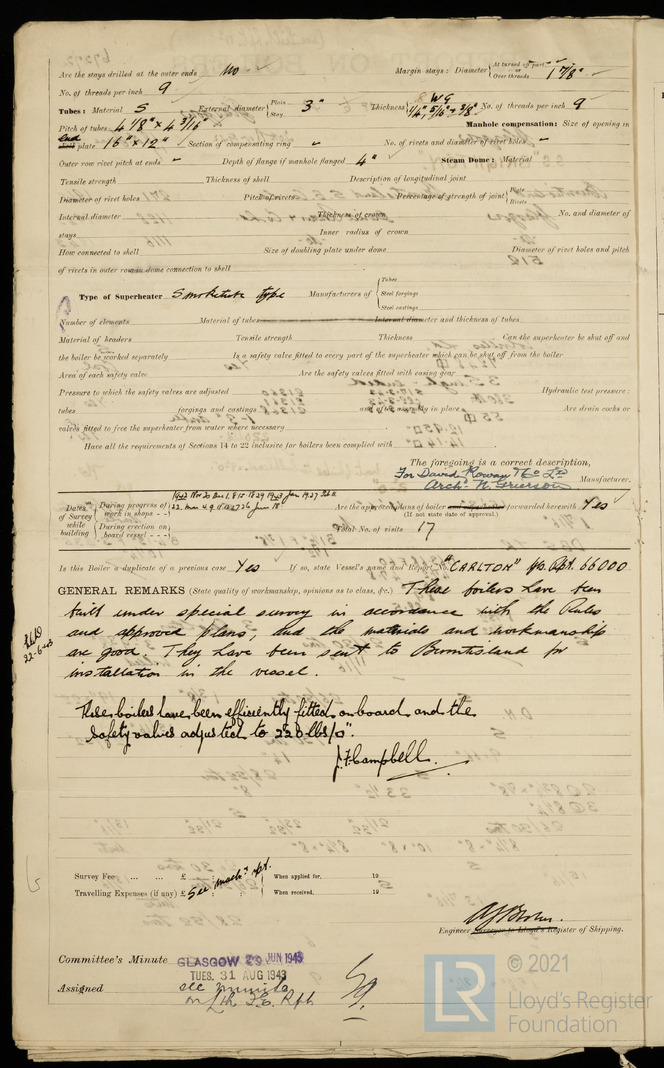 Are the stays drilled at the outer ends No Margin stays: Diameter { At turned off part, or Over threads 1 7/8"
No. of threads per inch 9
Tubes: Material S External diameter { Plain Stay 3" Thickness { 8 WG 1/4", 5/16" & 3/8" No. of threads per inch 9
Pitch of tubes 4 1/8" x 4 3/16" Manhole compensation: Size of opening in
End shell plate 16" x 12" Section of compensating ring " No. of rivets and diameter of rivet holes "
Outer row rivet pitch at ends " Depth of flange if manhole flanged 4" Steam Dome: Material
Tensile strength Thickness of shell Description of longitudinal joint
Diameter of rivet holes Pitch of rivets Percentage of strength of joint { Plate Rivets
Internal diameter Thickness of crown No. and diameter of
stays Inner radius of crown
How connected to shell Size of doubling plate under dome Diameter of rivet holes and pitch
of rivets in outer row in dome connection to shell
Type of Superheater Smoketube type Manufacturers of { Tubes Steel forgings Steel castings
Number of elements Material of tubes Internal diameter and thickness of tubes
Material of headers Tensile strength Thickness Can the superheater be shut off and
the boiler be worked separately Is a safety valve fitted to every part of the superheater which can be shut off from the boiler
Area of each safety valve Are the safety valves fitted with easing gear
Pressure to which the safety valves are adjusted Hydraulic test pressure:
tubes forgings and castings and after assembly in place Are drain cocks or
valves fitted to free the superheater from water where necessary
Have all the requirements of Sections 14 to 22 inclusive for boilers been complied with
The foregoing is a correct description,
For David Rowan & Co Ld
Archd. N. Grierson Manufacturer.
Dates of Survey while building { During progress of work in shops - - 1942 Nov 20 Dec 1. 8 15 18 29 1943 Jan 19 27
22. Mar 4 9 18 22 26 Jun 18
During erection on board vessel - - -
Are the approved plans of boiler and superheater forwarded herewith Yes
(If not state date of approval.)
Total No. of visits 17
Is this Boiler a duplicate of a previous case Yes If so, state Vessel's name and Report No. "CARLTON" No. Rpt. 66000
GENERAL REMARKS (State quality of workmanship, opinions as to class, &c.) These boilers have been
built under special survey in accordance with the Rules
and approved plans, and the materials and workmanship
are good. They have been sent to Burntisland for
installation in the vessel.
22-6-43
These boilers have been efficiently fitted on board and the
safety valves adjusted to 220 lbs/□".
J. F. Campbell.
Survey Fee ... ... £ : : When applied for, 19
See Mach.y rpt.
Travelling Expenses (if any) £ : : When received, 19
Engineer Surveyor to Lloyd's Register of Shipping.
Committee's Minute GLASGOW 29 JUN 1943
TUES. 31 AUG 1943
Assigned see minute
on Lth F.E. Rpt
© 2021
LR
Lloyd's Register
Foundation